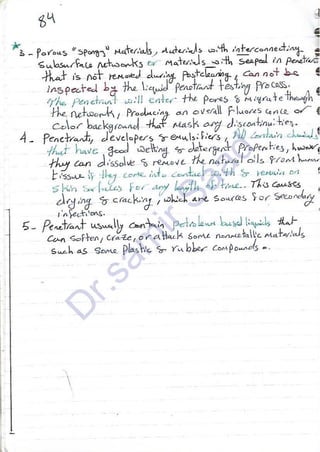 84
* 3 - Porous "spongy" Materials, Materials with interconnecting
Subsurface networks or Materials with seaped in penetrant
that is not removed during Postcleaning, can not be
inspected by the liquid penetrant testing process.
The penetrant will enter the pores & migrate through
the network, Producing an overall Fluorescence or
Color background that mask any discontinuities.
4 - Penetrants, developers & emulsifiers, All contain chemicals
that have good wetting & detergent properties, however
they can dissolve & remove the natural oils from human
tissue is they come into contact with & remain on
skin surfaces for any length of time. This causes
drying & cracking, which are sources for secondary
infections.
5 - Penetrant usually contain petroleum based liquids that
can soften, craze, or attack some nonmetallic materials
such as some plastic & rubber compounds.
Dr. samir